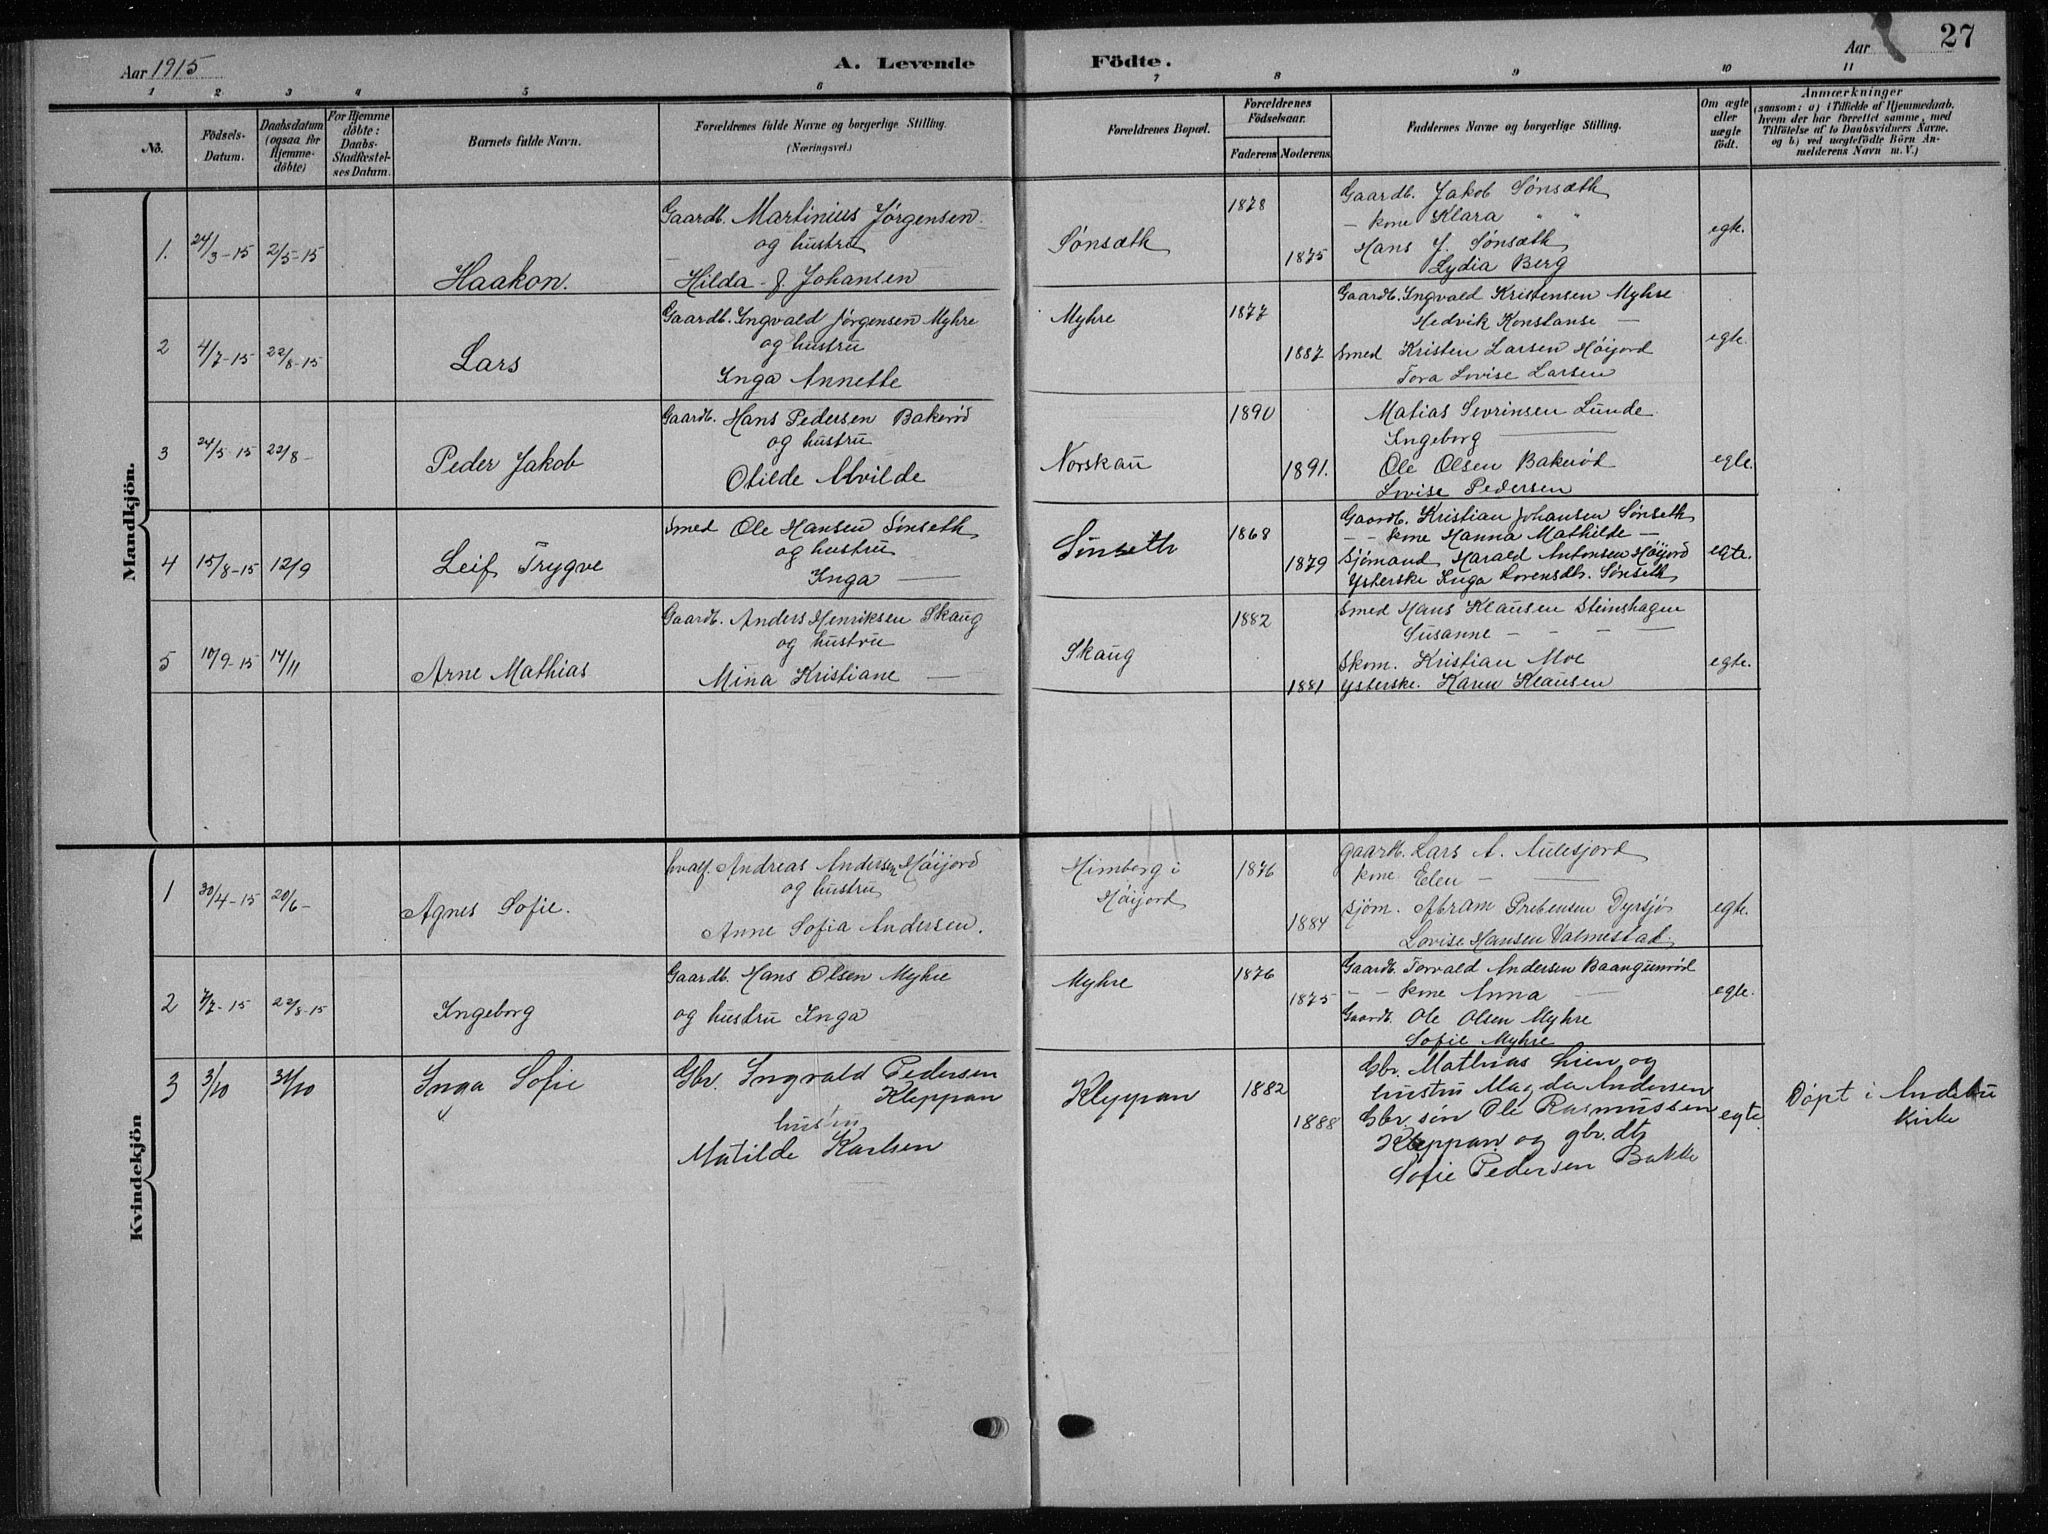 Aar 1915
A. Levende
Födte.
Aar
27
1 2 3 4 5 6 7 8 9 10 11
No.
Födsels-
Datum.
Daabsdatum
(ogsaa for
Hjemme-
döbte)
For Hjemme
döbte:
Daabs-
Stadfæstel-
ses Datum.
Barnets fulde Navn.
Forældrenes fulde Navne og borgerlige Stilling.
(Næringsvei.)
Forældrenes Bopæl.
Forældrenes
Födselsaar.
Faderens
Moderens.
Faddernes Navne og borgerlige Stilling.
Om ægte
eller
uægte
födt.
Anmærkninger
(saasom: a) i Tilfælde af Hjemmedaab,
hvem der har forrettet samme, med
Tilföielse af to Daabsvidners Navne,
og b) ved uægtefödte Börn An-
melderens Navn m. V.)
Mandkjön.
1. 24/3-15 2/5-15
Haakon.
Gaardb. Martinius Jørgensen
og hustru
Hilda J. Johansen
Sønsæth
1878
1875
Gaardb. Jakob Sønsæth
- kone Klara " "
Hans J. Sønsæth
Lydia Berg
egte.
2 4/7-15 22/8-15
Lars
Gaardb. Ingvald Jørgensen Myhre
og hustru
Inga Annette
Myhre
1877
1887
Gaardb. Ingvald Kristensen Myhre
Hedvik Konstanse —
Smed Kristen Larsen Høijord
Tora Lovise Larsen
egte.
3 24/5-15 22/8-
Peder Jakob
Gaardb. Hans Pedersen Bakerød
og hustru
Otilde Alvilde
Norskau
1890
1891.
Matias Sevrinsen Lunde
Ingeborg —
Ole Olsen Bakerød
Lovise Pedersen
egte.
4 15/8-15 12/9
Leif Trygve
Smed Ole Hansen Sønseth
og hustru
Inga —
Sønseth
1868
1879
Gaardb. Kristian Johansen Sønseth
- - kone Hanna Mathilde —
Sjømand Harald Antonsen Høijord
Ysterske Inga Lorensdtr. Sønseth
egte.
5 10/9-15 14/11
Arne Mathias
Gaardb. Anders Henriksen Skaug
og hustru
Mina Kristiane —
Skaug
1882
1881
Smed Hans Klausen Steinshagen
Susanne - - - —
Skom. Kristian Moe
Ysterske. Karen Klausen
egte.
Kvindekjön
1 30/4-15 20/6-
Agnes Sofie.
hvalf. Andreas Andersen Høijord
og hustru
Anne Sofia Andersen.
Himberg i
Høijord
1876
1884
gaardb. Lars A. Aulesjord
kone Elen - —
Sjøm. Abram Prebensen Dyrsjø
Lovise Hansen Valmestad.
egte.
2 7/7-15 22/8-15
Ingeborg
Gaardb. Hans Olsen Myhre
og hustru Inga
Myhre
1876
1875
Gaardb. Torvald Andersen Baangunrød
- - kone Anna —
Gaardb. Ole Olsen Myhre
Sofie Myhre
egte.
3 3/10 31/10
Inga Sofie
Gbr. Ingvald Pedersen
Kleppan
hustru
Matilde Karlsen
Kleppan
1882
1888
Gbr. Mathias Lien og
hustru Magda Andersen
Gbr. søn Ole Rasmussen
Kleppan og gbr. dtr.
Sofie Pedersen Bakke
egte.
Døpt i Andebu
Kirke